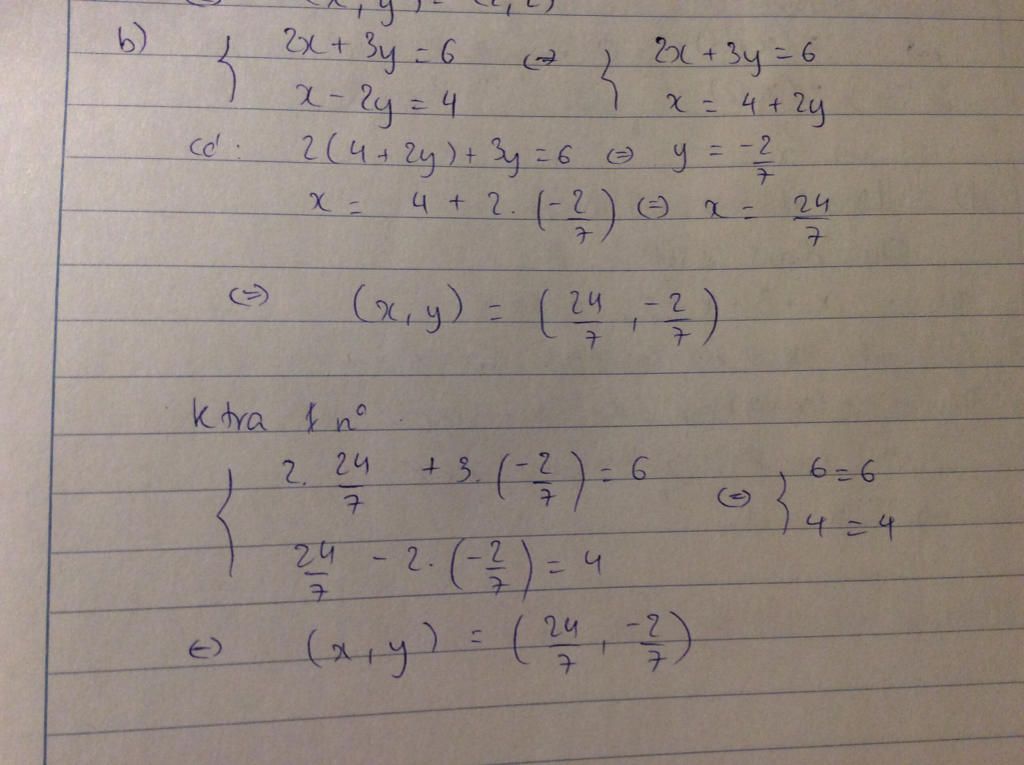 (x, y) = (2, 2)
b) { 2x + 3y = 6 ⇔ { 2x + 3y = 6
x - 2y = 4 x = 4 + 2y
2(4 + 2y) + 3y = 6 ⇔ y = -2/7
x = 4 + 2. (-2/7) ⇔ x = 24/7
⇔ (x, y) = (24/7, -2/7)
Ktra n°
{ 2. 24/7 + 3. (-2/7) = 6 ⇔ { 6 = 6
24/7 - 2. (-2/7) = 4 4 = 4
⇔ (x, y) = (24/7, -2/7)